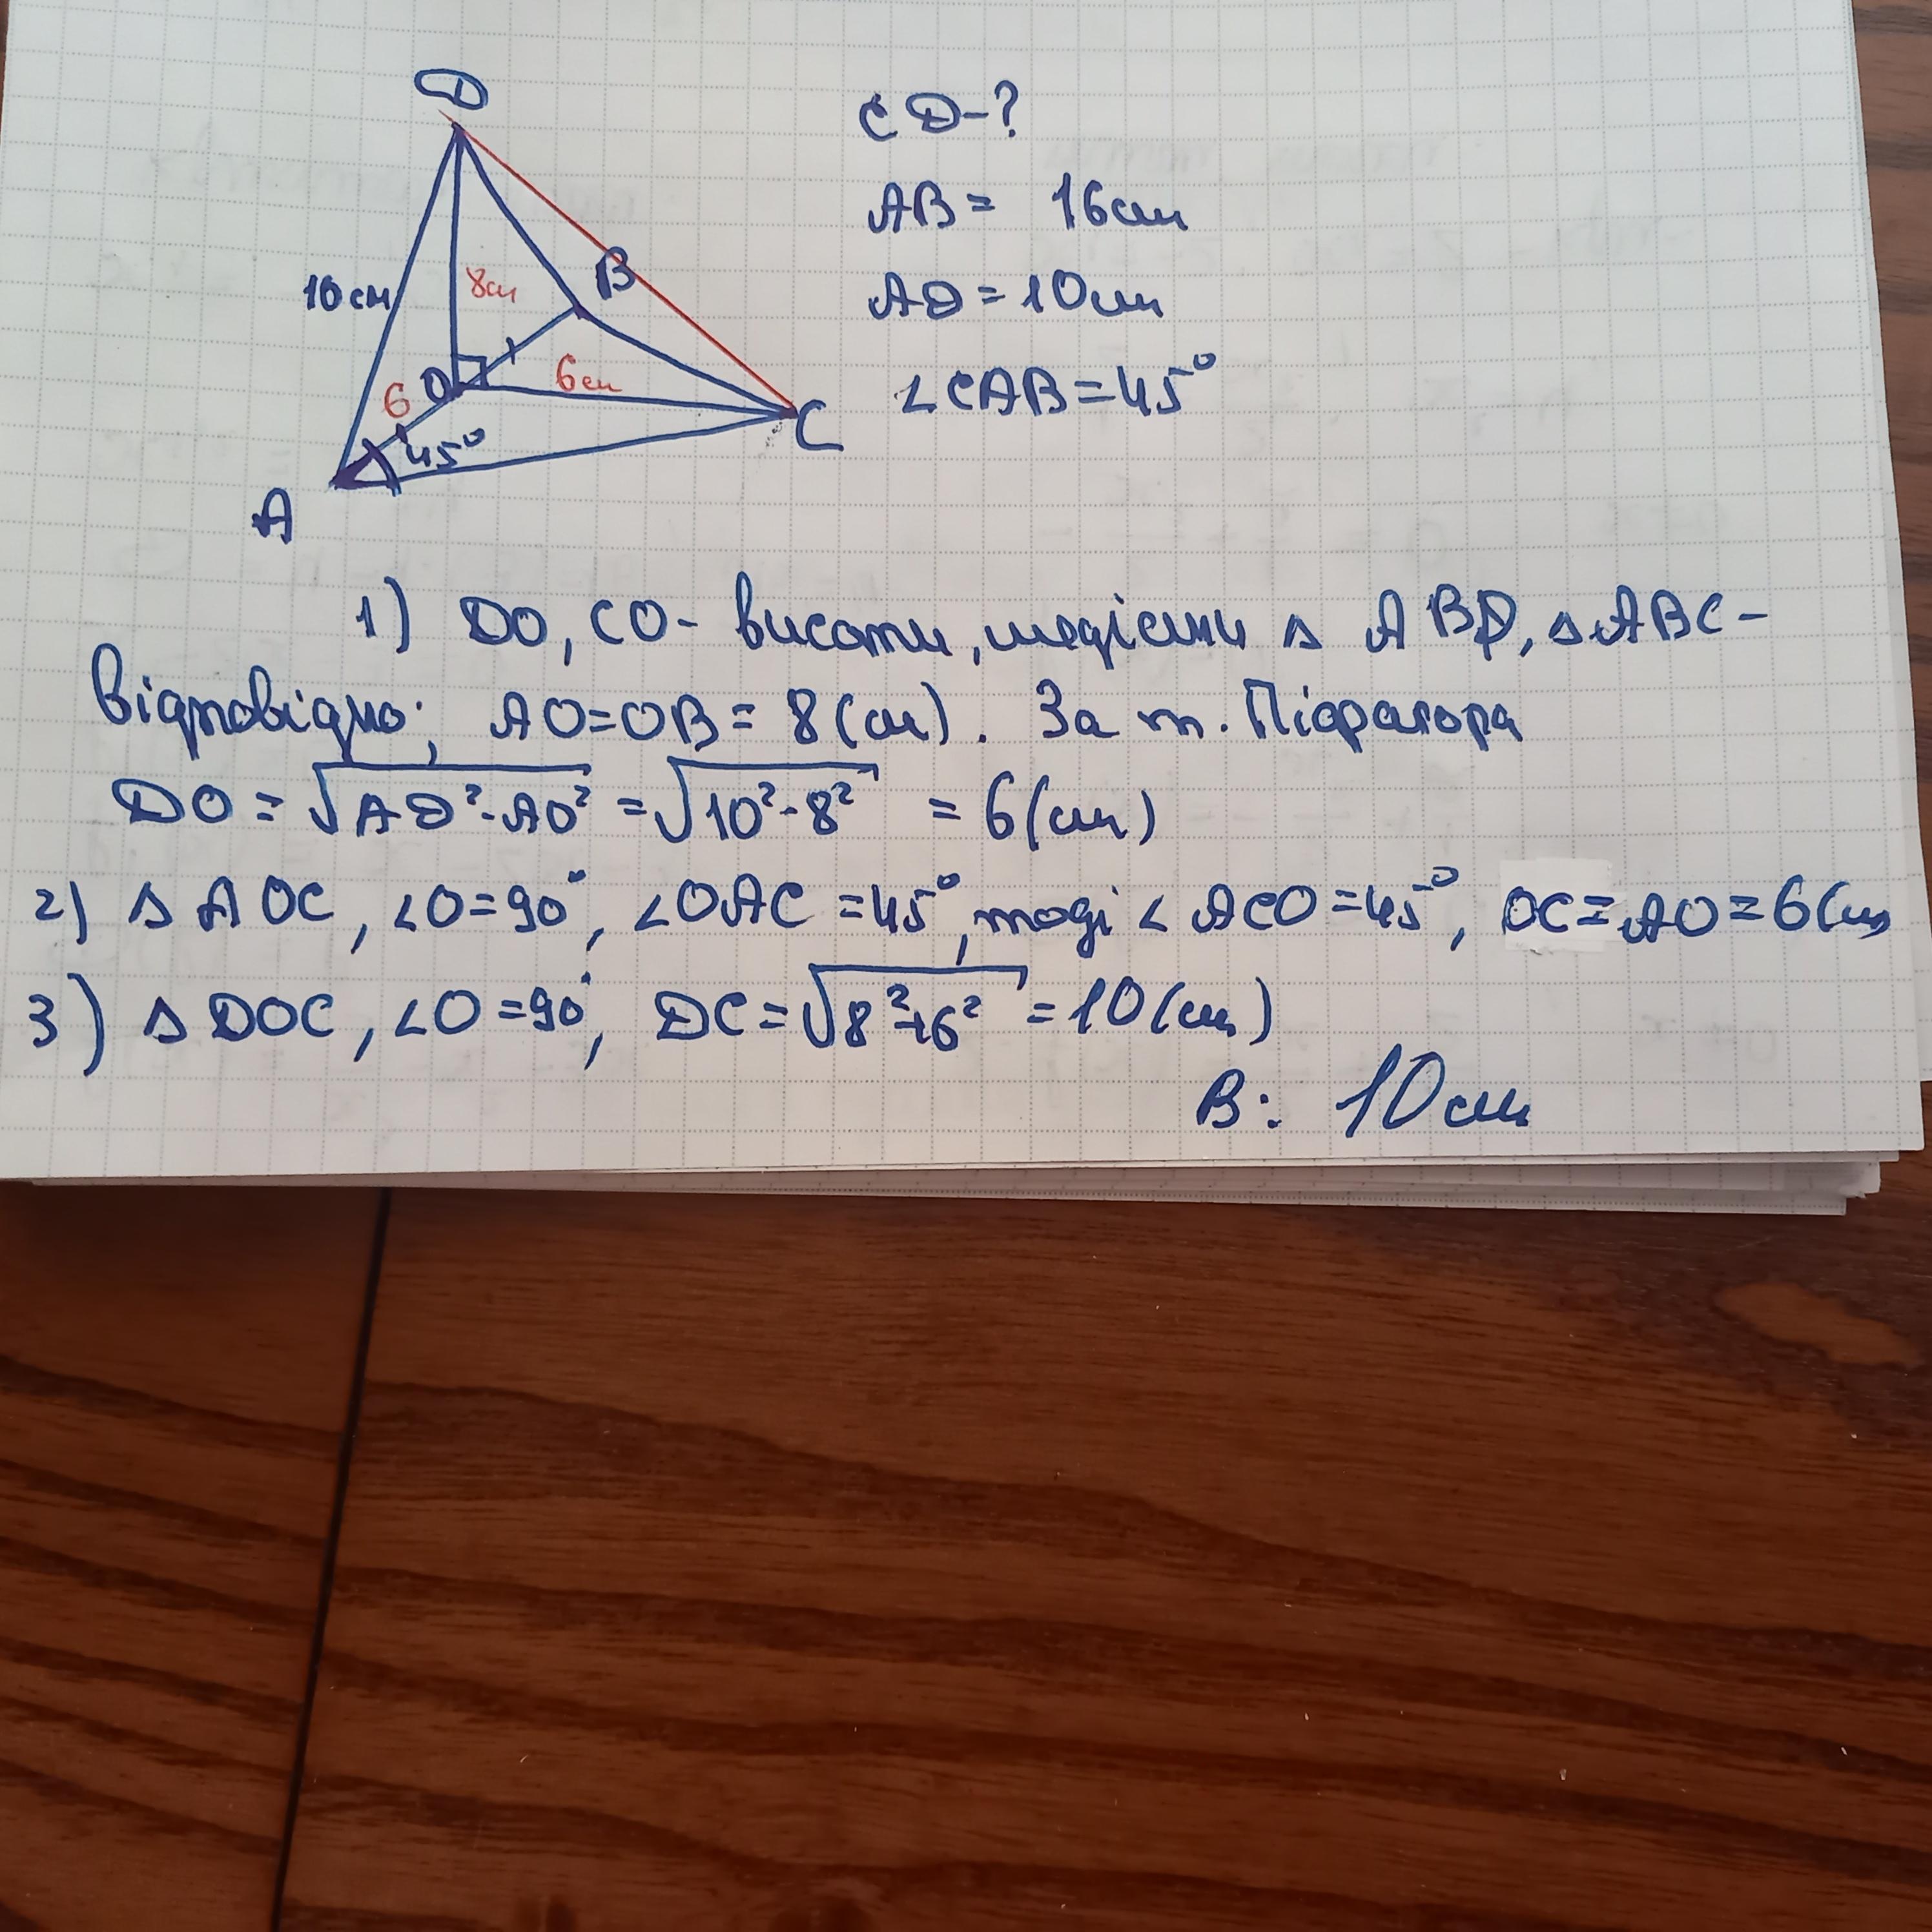 D
CD-?
AB = 16см
AD = 10см
∠CAB = 45°
10 см
8см
B
6
O
6см
45°
C
A
1) DO, CO - висоти, медіани △ ABD, △ABC -
відповідно; AO=OB= 8(см). За т. Піфагора
DO = √AD²-AO² = √10²-8² = 6(см)
2) △ AOC, ∠O=90°, ∠OAC =45°, тоді ∠ ACO =45°, OC = AO = 6(см
3) △ DOC, ∠O =90°, DC = √8²+6² = 10(см)
В: 10см